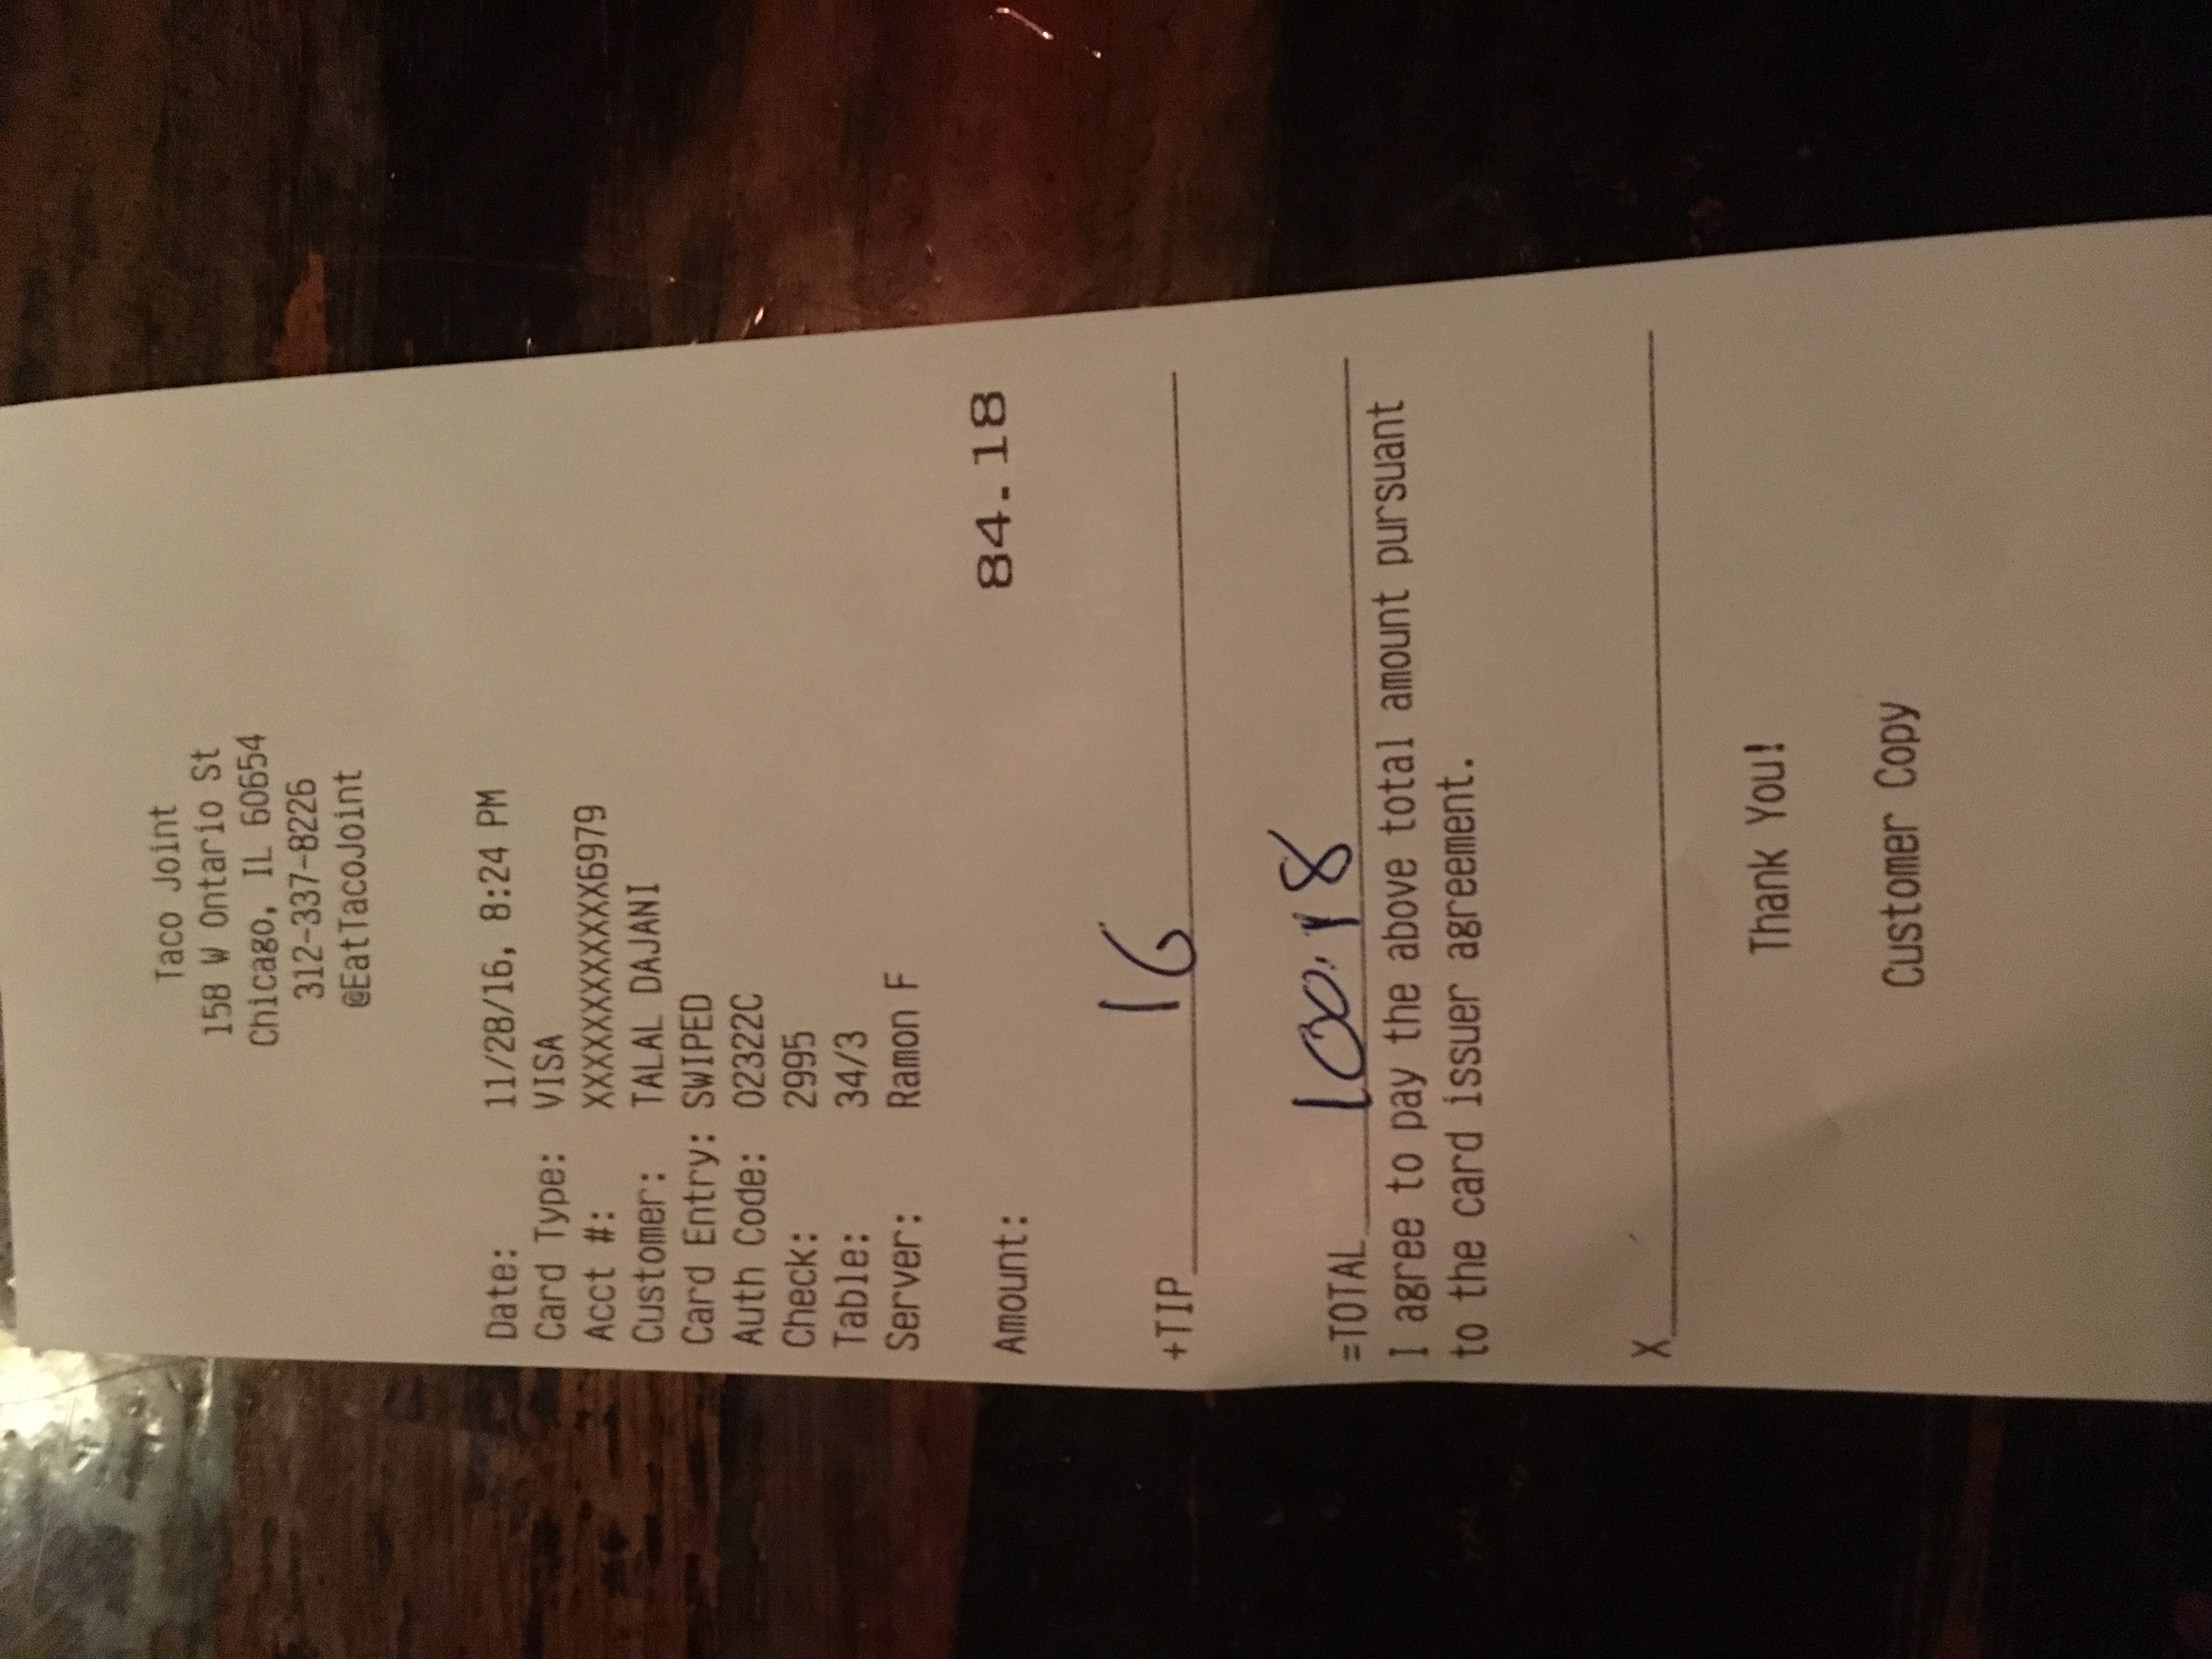 Taco Joint
158 W Ontario St
Chicago, IL 60654
312-337-8226
@EatTacoJoint
Date: 11/28/16, 8:24 PM
Card Type: VISA
Acct #: XXXXXXXXXXXX6979
Customer: TALAL DAJANI
Card Entry: SWIPED
Auth Code: 02322C
Check: 2995
Table: 34/3
Server: Ramon F
Amount: 84.18
+TIP 16
=TOTAL 100.18
I agree to pay the above total amount pursuant
to the card issuer agreement.
X
Thank You!
Customer Copy